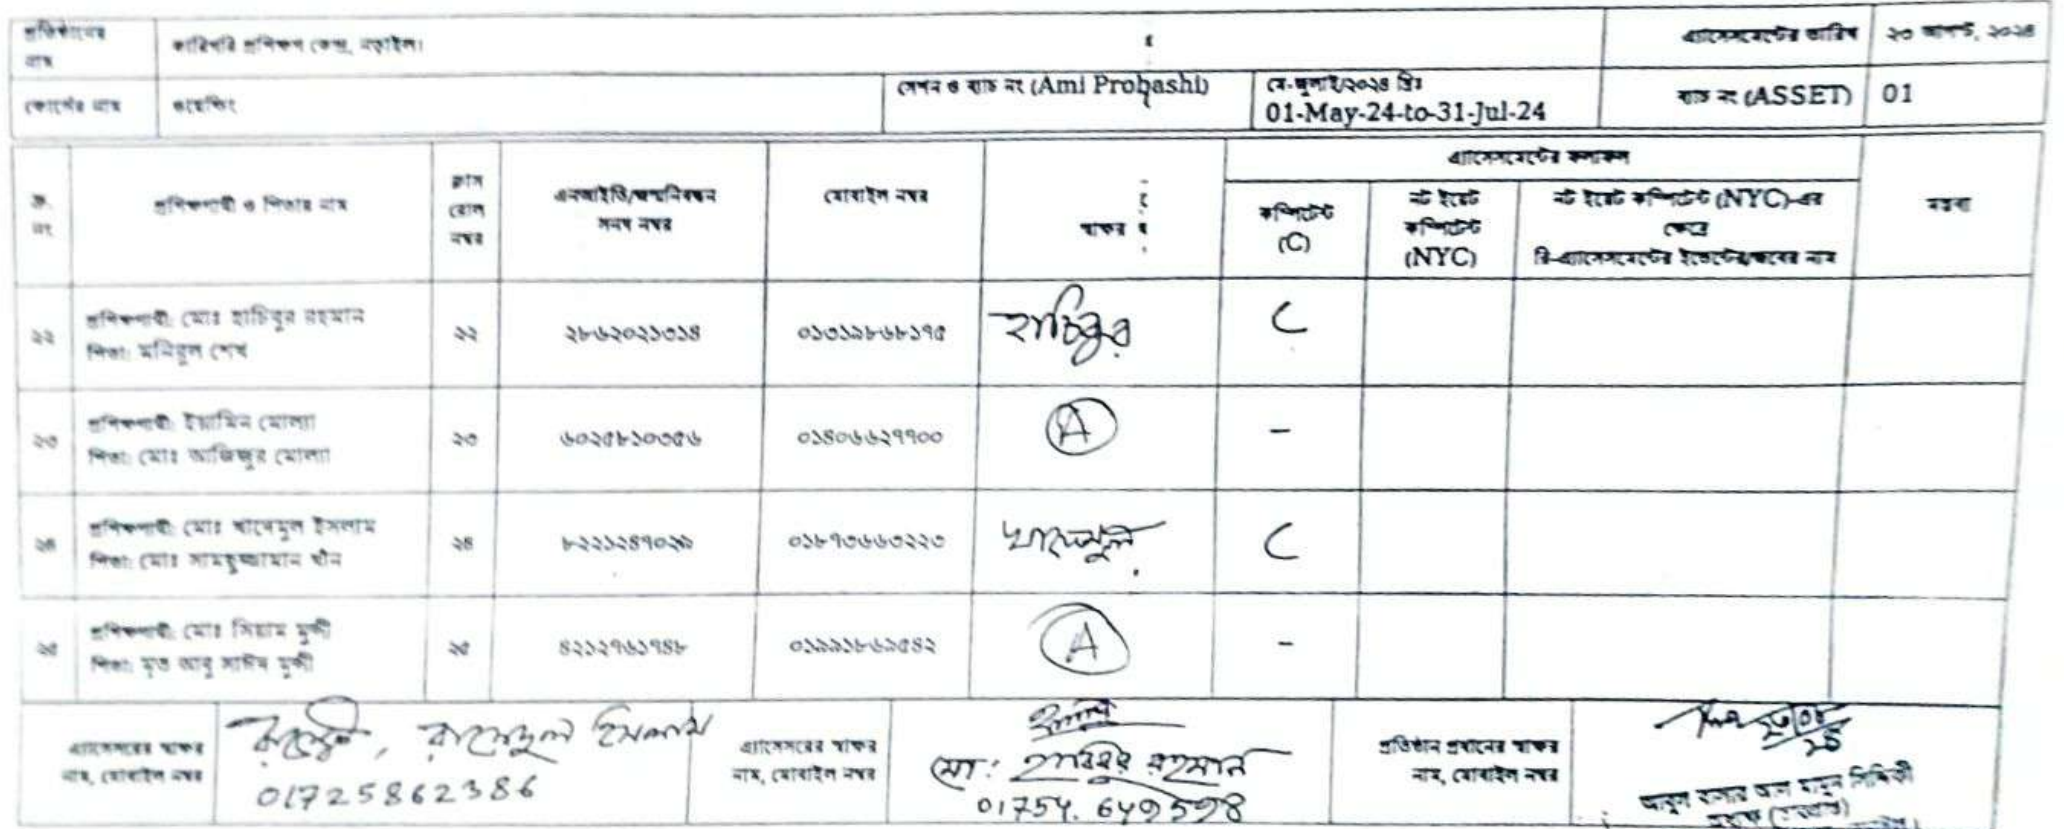 প্রতিষ্ঠানের নাম
কারিগরি প্রশিক্ষণ কেন্দ্র, নড়াইল।
এ্যাসেসমেন্টের তারিখ
২৩ আগস্ট, ২০২৪
কোর্সের নাম
ওয়েল্ডিং
সেশন ও ব্যাচ নং (Ami Probashi)
মে-জুলাই/২০২৪ খ্রিঃ
01-May-24-to-31-Jul-24
ব্যাচ নং (ASSET)
01
ক্র. নং
প্রশিক্ষণার্থী ও পিতার নাম
ক্লাস রোল নম্বর
এনআইডি/জন্মনিবন্ধন সনদ নম্বর
মোবাইল নম্বর
স্বাক্ষর
এ্যাসেসমেন্টের ফলাফল
কম্পিটেন্ট (C)
নট ইয়েট কম্পিটেন্ট (NYC)
নট ইয়েট কম্পিটেন্ট (NYC)-এর ক্ষেত্রে
রি-এ্যাসেসমেন্টের ইভেন্টের/জবের নাম
মন্তব্য
২২
প্রশিক্ষণার্থী: মোঃ হাচিবুর রহমান
পিতা: মনিরুল শেখ
২২
২৮৬২০২১৩১৪
০১৩১৯৮৬৮১৭৫
হাচিবুর
C
২৩
প্রশিক্ষণার্থী: ইয়ামিন মোল্যা
পিতা: মোঃ আজিজুর মোল্যা
২৩
৬০২৫৮১০৩৫৬
০১৪০৬৬২৭৭০০
A
-
২৪
প্রশিক্ষণার্থী: মোঃ খাদেমুল ইসলাম
পিতা: মোঃ সামছুজ্জামান খাঁন
২৪
৮২২১২৪৭০২৯
০১৮৭৩৬৬৩২২৩
খাদেমুল
C
২৫
প্রশিক্ষণার্থী: মোঃ সিয়াম মুন্সী
পিতা: মৃত আবু সাঈদ মুন্সী
২৫
৪২১২৭৬১৭৪৮
০১৯৯১৮৬২৫৪২
A
-
এ্যাসেসরের স্বাক্ষর
নাম, মোবাইল নম্বর
রাশেদুল ইসলাম
01725862386
এ্যাসেসরের স্বাক্ষর
নাম, মোবাইল নম্বর
মো: হাবিবুর রহমান
01754.649598
প্রতিষ্ঠান প্রধানের স্বাক্ষর
নাম, মোবাইল নম্বর